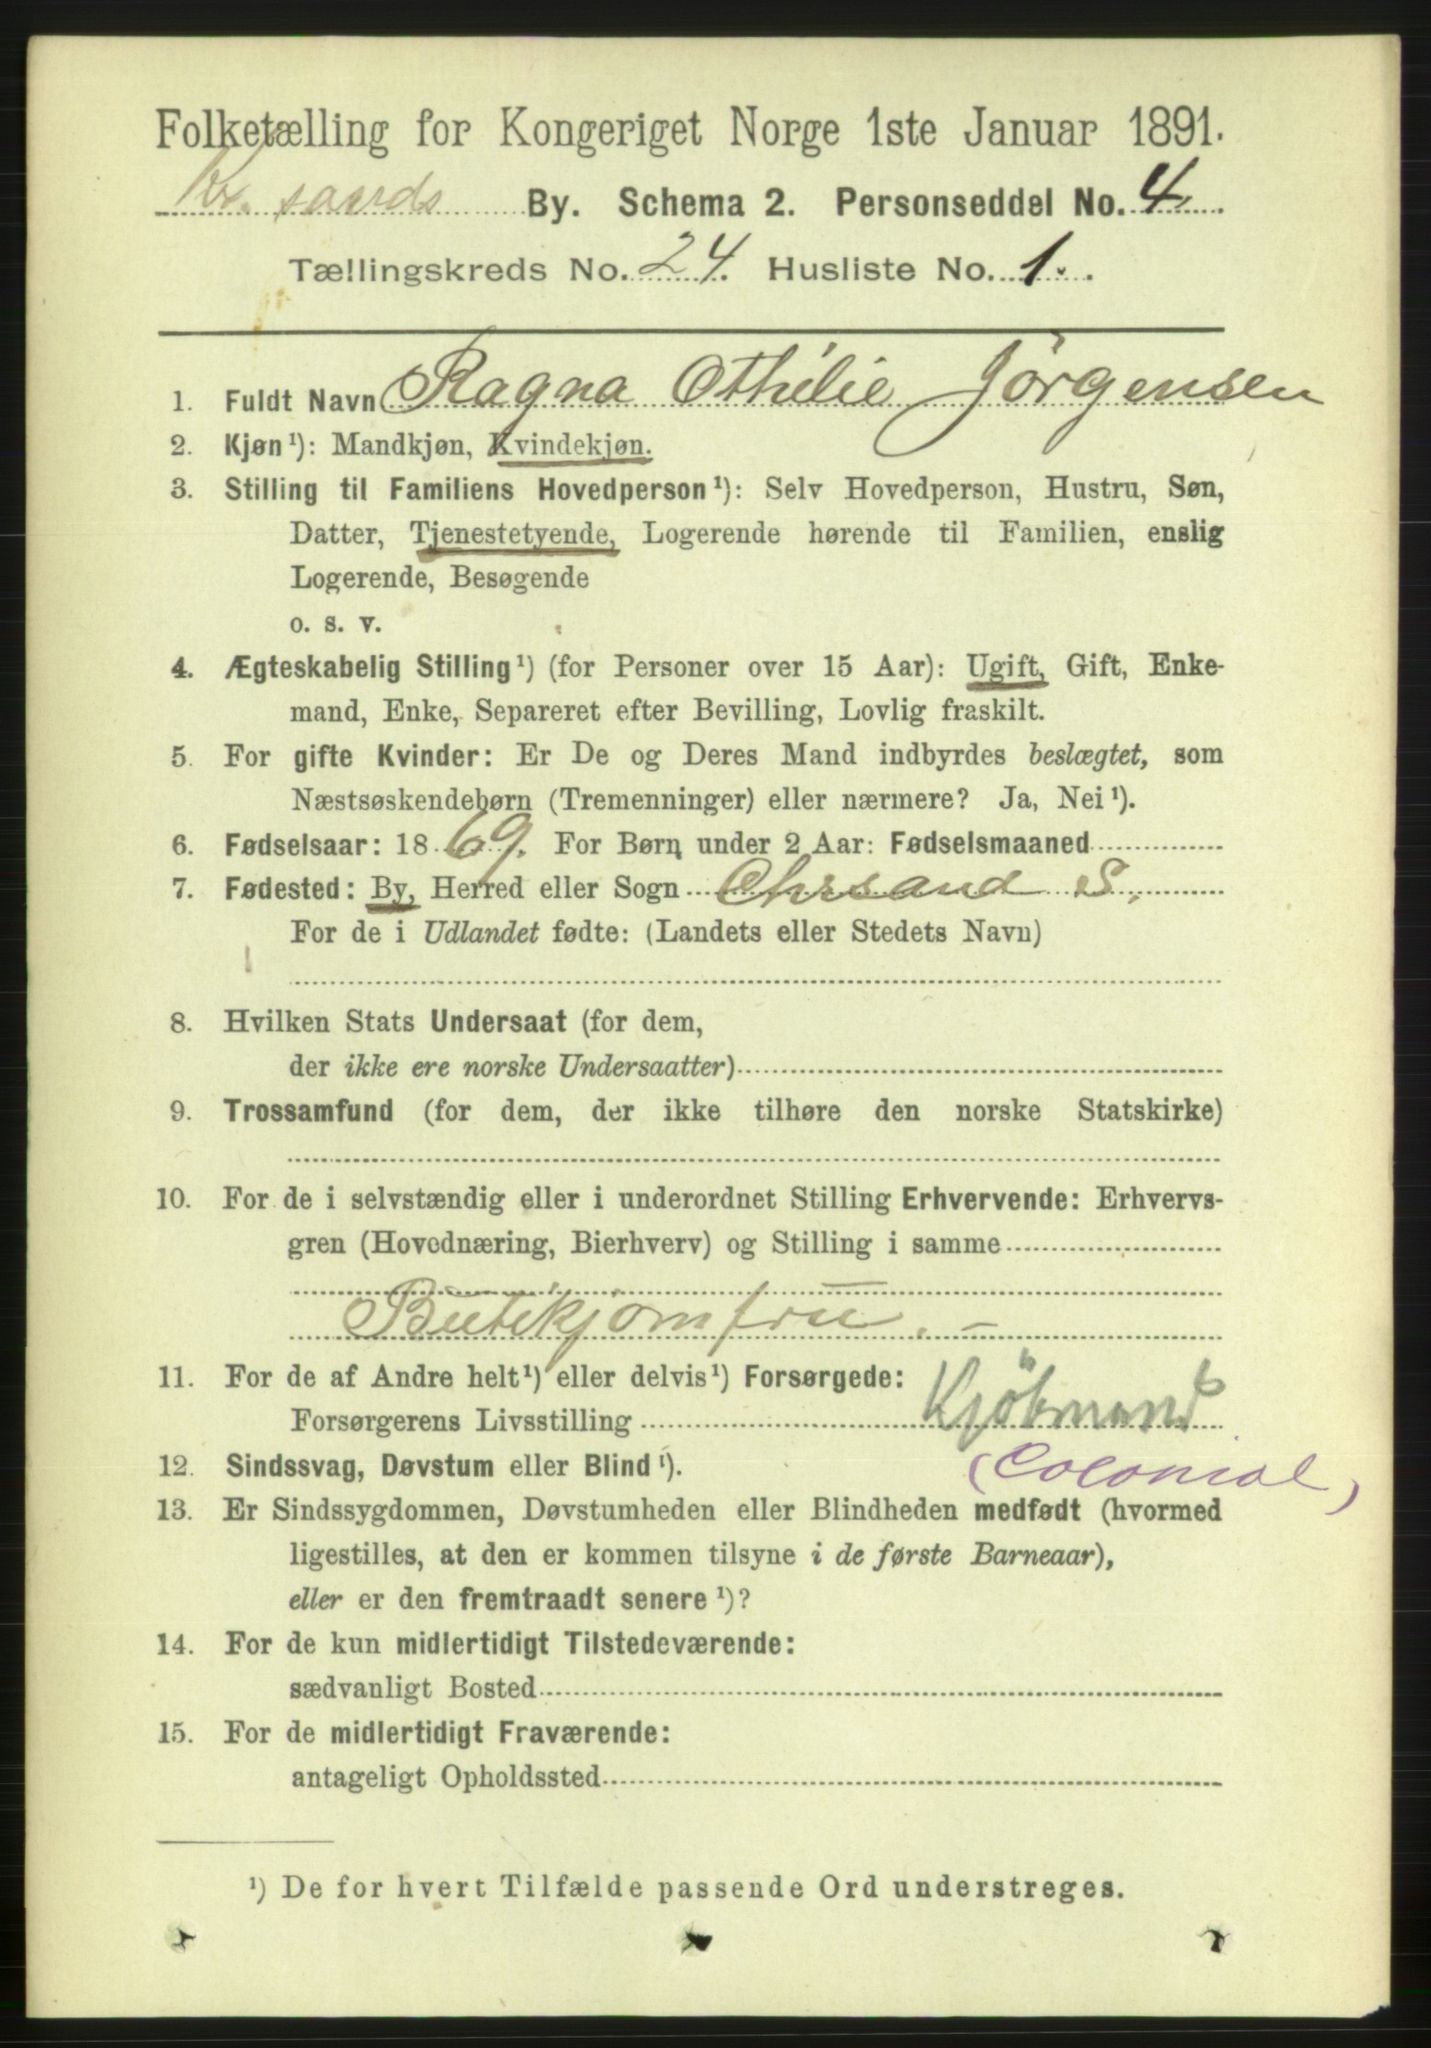 Folketælling for Kongeriget Norge 1ste Januar 1891.
Kr. sands By. Schema 2. Personseddel No. 4.
Tællingskreds No. 24. Husliste No. 1.
1. Fuldt Navn Ragna Othilie Jörgensen
2. Kjøn ¹): Mandkjøn, Kvindekjøn.
3. Stilling til Familiens Hovedperson ¹): Selv Hovedperson, Hustru, Søn,
Datter, Tjenestetyende, Logerende hørende til Familien, enslig
Logerende, Besøgende
o. s. v.
4. Ægteskabelig Stilling ¹) (for Personer over 15 Aar): Ugift, Gift, Enke-
mand, Enke, Separeret efter Bevilling, Lovlig fraskilt.
5. For gifte Kvinder: Er De og Deres Mand indbyrdes beslægtet, som
Næstsøskendebørn (Tremenninger) eller nærmere? Ja, Nei ¹).
6. Fødselsaar: 1869. For Børn under 2 Aar: Fødselsmaaned
7. Fødested: By, Herred eller Sogn Chrsand S.
For de i Udlandet fødte: (Landets eller Stedets Navn)
8. Hvilken Stats Undersaat (for dem,
der ikke ere norske Undersaatter)
9. Trossamfund (for dem, der ikke tilhøre den norske Statskirke)
10. For de i selvstændig eller i underordnet Stilling Erhvervende: Erhvervs-
gren (Hovednæring, Bierhverv) og Stilling i samme
Butikjomfru. –
11. For de af Andre helt ¹) eller delvis ¹) Forsørgede:
Forsørgerens Livsstilling Kjöbmand
12. Sindssvag, Døvstum eller Blind ¹). (Colonial)
13. Er Sindssygdommen, Døvstumheden eller Blindheden medfødt (hvormed
ligestilles, at den er kommen tilsyne i de første Barneaar),
eller er den fremtraadt senere ¹)?
14. For de kun midlertidigt Tilstedeværende:
sædvanligt Bosted
15. For de midlertidigt Fraværende:
antageligt Opholdssted
¹) De for hvert Tilfælde passende Ord understreges.